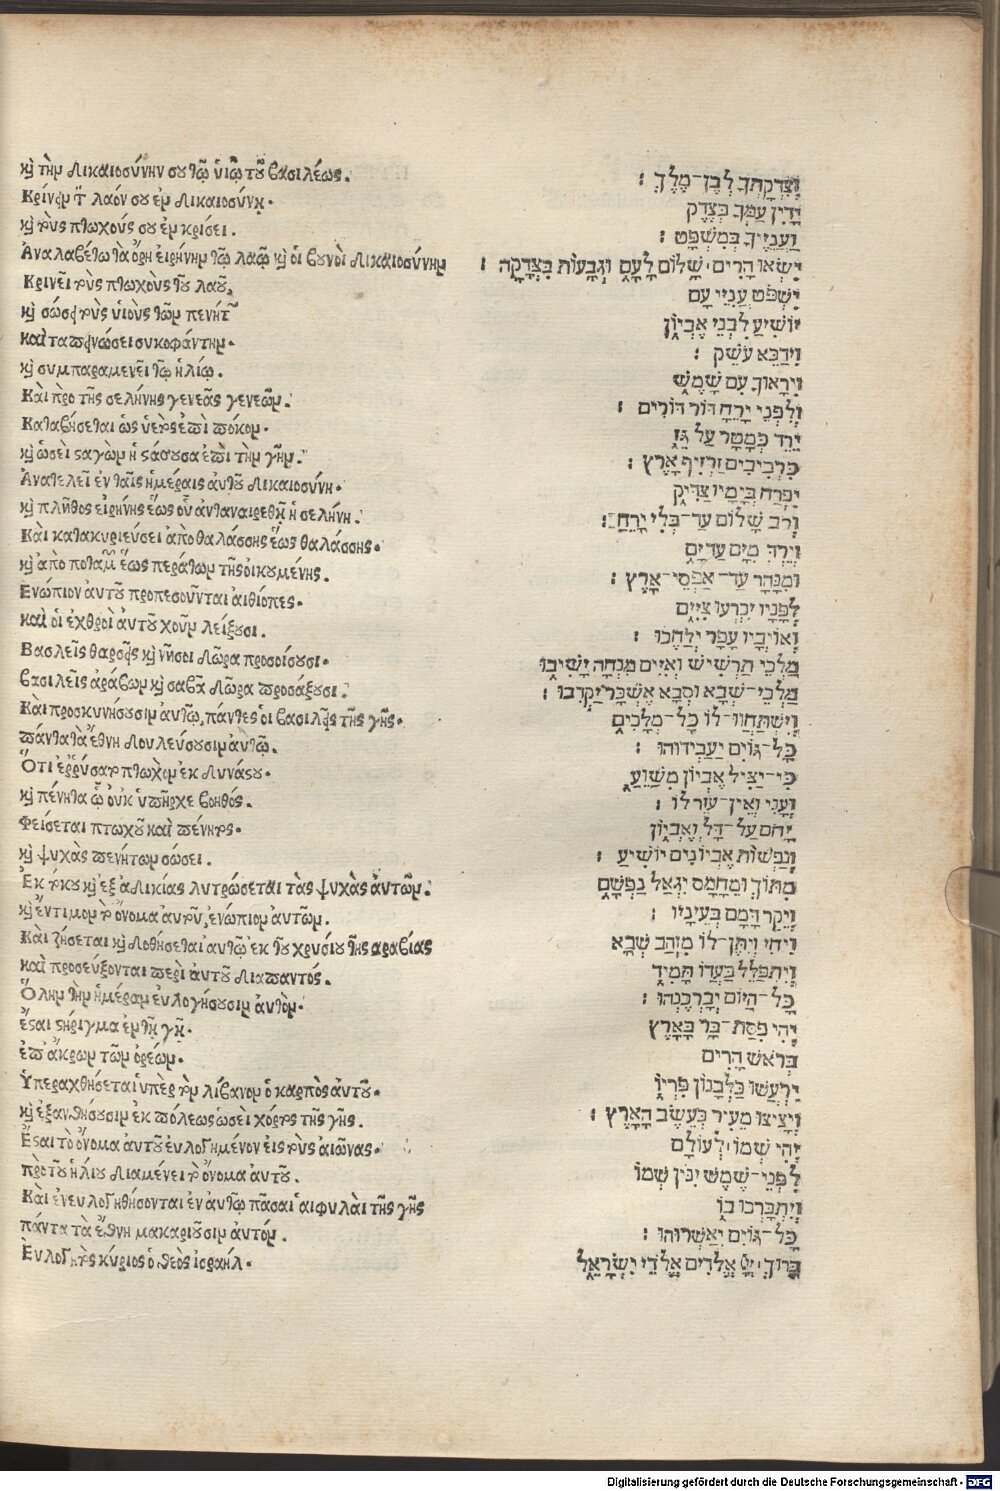 κ̣ τὴν δικαιοσύνην σου τῷ ὑιῷ τοῦ βασιλέως.
Κρίνειν τὸν λαόν σου ἐν δικαιοσύνῃ.
κ̣ τοὺς πτωχούς σου ἐν κρίσει.
Ἀναλαβέτω τὰ ὄρη ἐιρήνην τῷ λαῷ κ̣ ὁι βουνὸι δικαιοσύνην
Κρινεῖ τοὺς πτωχοὺς τοῦ λαοῦ,
κ̣ σώσει τοὺς ὑιοὺς τῶν πενήτων
καὶ ταπεινώσει συκοφάντην.
κ̣ συμπαραμενεῖ τῷ ἡλίῳ.
Κὰι πρὸ τῆς σελήνης γενεᾶς γενεῶν.
Καταβήσεται ὡς ὑετὸς ἐπὶ πόκον.
κ̣ ὡσεὶ σαγὼν ἡ στάζουσα ἐπὶ τὴν γῆν.
Ἀνατελεῖ ἐν ταῖς ἡμέραις ἀυτοῦ δικαιοσύνη.
κ̣ πλῆθος ἐιρήνης ἕως οὗ ἀνταναιρεθῇ ἡ σελήνη.
Κὰι κατακυριέυσει ἀπὸ θαλάσσης ἕως θαλάσσης.
κ̣ ἀπὸ ποταμῶν ἕως περάτων τῆς ὀικουμένης.
Ἐνώπιον ἀυτοῦ προπεσοῦνται ἀιθίοπες.
καὶ ὁι ἐχθροὶ ἀυτοῦ χοῦν λείξουσι.
Βασλεῖς θαρσεῖς κ̣ νῆσοι δῶρα προσοίσουσι.
βασιλεῖς ἀράβων κ̣ σαβᾶ δῶρα προσάξουσι.
Κὰι προσκυνήσουσιν ἀυτῷ, πάντες ὁι βασιλεῖς τῆς γῆς.
πάντα τὰ ἔθνη δουλεύσουσιν ἀυτῷ.
Ὅτι ἐῤῥύσατο πτωχὸν ἐκ δυνάστου.
κ̣ πένητα ᾧ ὀυκ ὑπῆρχε βοηθός.
Φείσεται πτωχοῦ καὶ πένητος.
κ̣ ψυχὰς πενήτων σώσει.
Ἐκ τόκου κ̣ ἐξ ἀδικίας λυτρώσεται τὰς ψυχὰς ἀυτῶν.
κ̣ ἔντιμον τὸ ὄνομα ἀυτοῦ, ἐνώπιον ἀυτῶν.
Κὰι ζήσεται κ̣ δοθήσεται ἀυτῷ ἐκ τοῦ χρυσίου τῆς αραβίας
καὶ προσεύξονται περὶ ἀυτοῦ διαπαντός.
Ὅλην τὴν ἡμέραν ἐυλογήσουσιν ἀυτόν.
Ἔσται στήριγμα ἐν τῇ γῇ.
ἐπ' ἄκρων τῶν ὀρέων.
Ὑπεραχθήσεται ὑπὲρ τὸν λίβανον ὁ καρπὸς ἀυτοῦ.
κ̣ ἐξανθήσουσιν ἐκ πόλεως ὡσὲι χόρτος τῆς γῆς.
Ἔσται τὸ ὄνομα ἀυτοῦ ἐυλογημένον ἐις τοὺς αιῶνας.
πρὸ τοῦ ἡλίου διαμένει τὸ ὄνομα ἀυτοῦ.
Κὰι ἐνευλογηθήσονται ἐν ἀυτῷ πᾶσαι ἁι φυλὰι τῆς γῆς
πάντα τὰ ἔθνη μακαριοῦσιν ἀυτόν.
Ἐυλογητὸς κύριος ὁ θεὸς ἰσραήλ.
וְצִדְקָתְךָ לְבֶן־מֶלֶךְ׃
יָדִין עַמְּךָ בְצֶדֶק
וַעֲנִיֶּיךָ בְמִשְׁפָּט׃
יִשְׂאוּ הָרִים שָׁלוֹם לָעָם וּגְבָעוֹת בִּצְדָקָה׃
יִשְׁפֹּט עֲנִיֵּי עָם
יוֹשִׁיעַ לִבְנֵי אֶבְיוֹן
וִידַכֵּא עֹשֵׁק׃
יִירָאוּךָ עִם שָׁמֶשׁ
וְלִפְנֵי יָרֵחַ דּוֹר דּוֹרִים׃
יֵרֵד כְּמָטָר עַל גֵּז
כִּרְבִיבִים זַרְזִיף אָרֶץ׃
יִפְרַח בְּיָמָיו צַדִּיק
וְרֹב שָׁלוֹם עַד־בְּלִי יָרֵחַ׃
וְיֵרְדְּ מִיָּם עַד יָם
וּמִנָּהָר עַד־אַפְסֵי־אָרֶץ׃
לְפָנָיו יִכְרְעוּ צִיִּים
וְאוֹיְבָיו עָפָר יְלַחֵכוּ׃
מַלְכֵי תַרְשִׁישׁ וְאִיִּים מִנְחָה יָשִׁיבוּ
מַלְכֵי־שְׁבָא וּסְבָא אֶשְׁכָּר יַקְרִבוּ׃
וְיִשְׁתַּחֲווּ־לוֹ כָל־מְלָכִים
כָּל־גּוֹיִם יַעַבְידוּהוּ׃
כִּי־יַצִּיל אֶבְיוֹן מְשַׁוֵּעַ
וְעָנִי וְאֵין־עֹזֵר לוֹ׃
יָחֹם עַל־דַּל וְאֶבְיוֹן
וְנַפְשׁוֹת אֶבְיוֹנִים יוֹשִׁיעַ׃
מִתּוֹךְ וּמֵחָמָס יִגְאַל נַפְשָׁם
וְיֵקַר דָּמָם בְּעֵינָיו׃
וִיחִי וְיִתֶּן־לוֹ מִזְּהַב שְׁבָא
וְיִתְפַּלֵּל בַּעֲדוֹ תָמִיד
כָּל־הַיּוֹם יְבָרְכֶנְהוּ׃
יְהִי פִסַּת־בַּר בָּאָרֶץ
בְּרֹאשׁ הָרִים
יִרְעַשׁ כַּלְּבָנוֹן פִּרְיוֹ
וְיָצִיצוּ מֵעִיר כְּעֵשֶׂב הָאָרֶץ׃
יְהִי שְׁמוֹ לְעוֹלָם
לִפְנֵי־שֶׁמֶשׁ יִנִּין שְׁמוֹ
וְיִתְבָּרְכוּ בוֹ
כָּל־גּוֹיִם יְאַשְּׁרוּהוּ׃
בָּרוּךְ יְיָ אֱלֹדִים אֱלֹדֵי יִשְׂרָאֵל
Digitalisierung gefördert durch die Deutsche Forschungsgemeinschaft - DFG